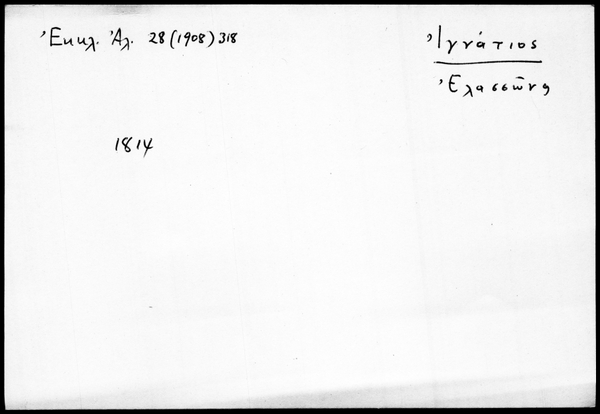 Ἐκκλ. Ἀλ. 28 (1908) 318
Ἰγνάτιος
Ἐλασσῶνος
1814